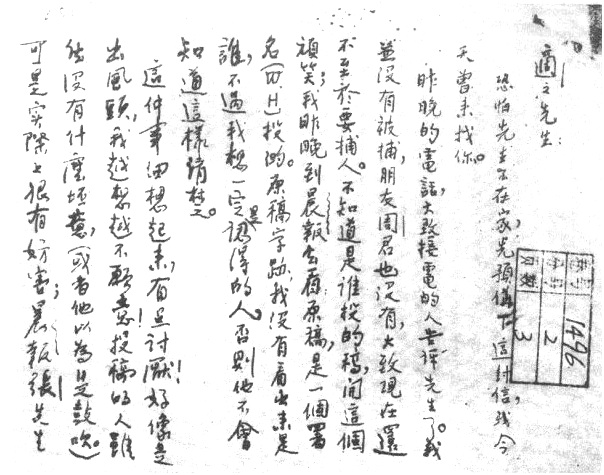 適之先生：
恐怕先生不在家，先預備下這封信，我今
天曾来找你。
昨晚的電話，大致接電的人告訴先生了。我
並没有被捕，朋友周君也没有，大致現在還
不至於要捕人。不知道是誰投的稿，闹這個
頑笑；我昨晚到晨報去看原稿，是一個署
名投的。原稿字跡，我没有看出来是
誰，不過我想一定是認得的人。否則他不會
知道這樣清楚。
這件事細想起来，有点討厭！好像是
出風頭，我越想越不願意！投稿的人雖
然没有什麽壞意，（或者他以為是鼓吹）。
可是实際上很有妨害；晨報張先生
1496
2
3